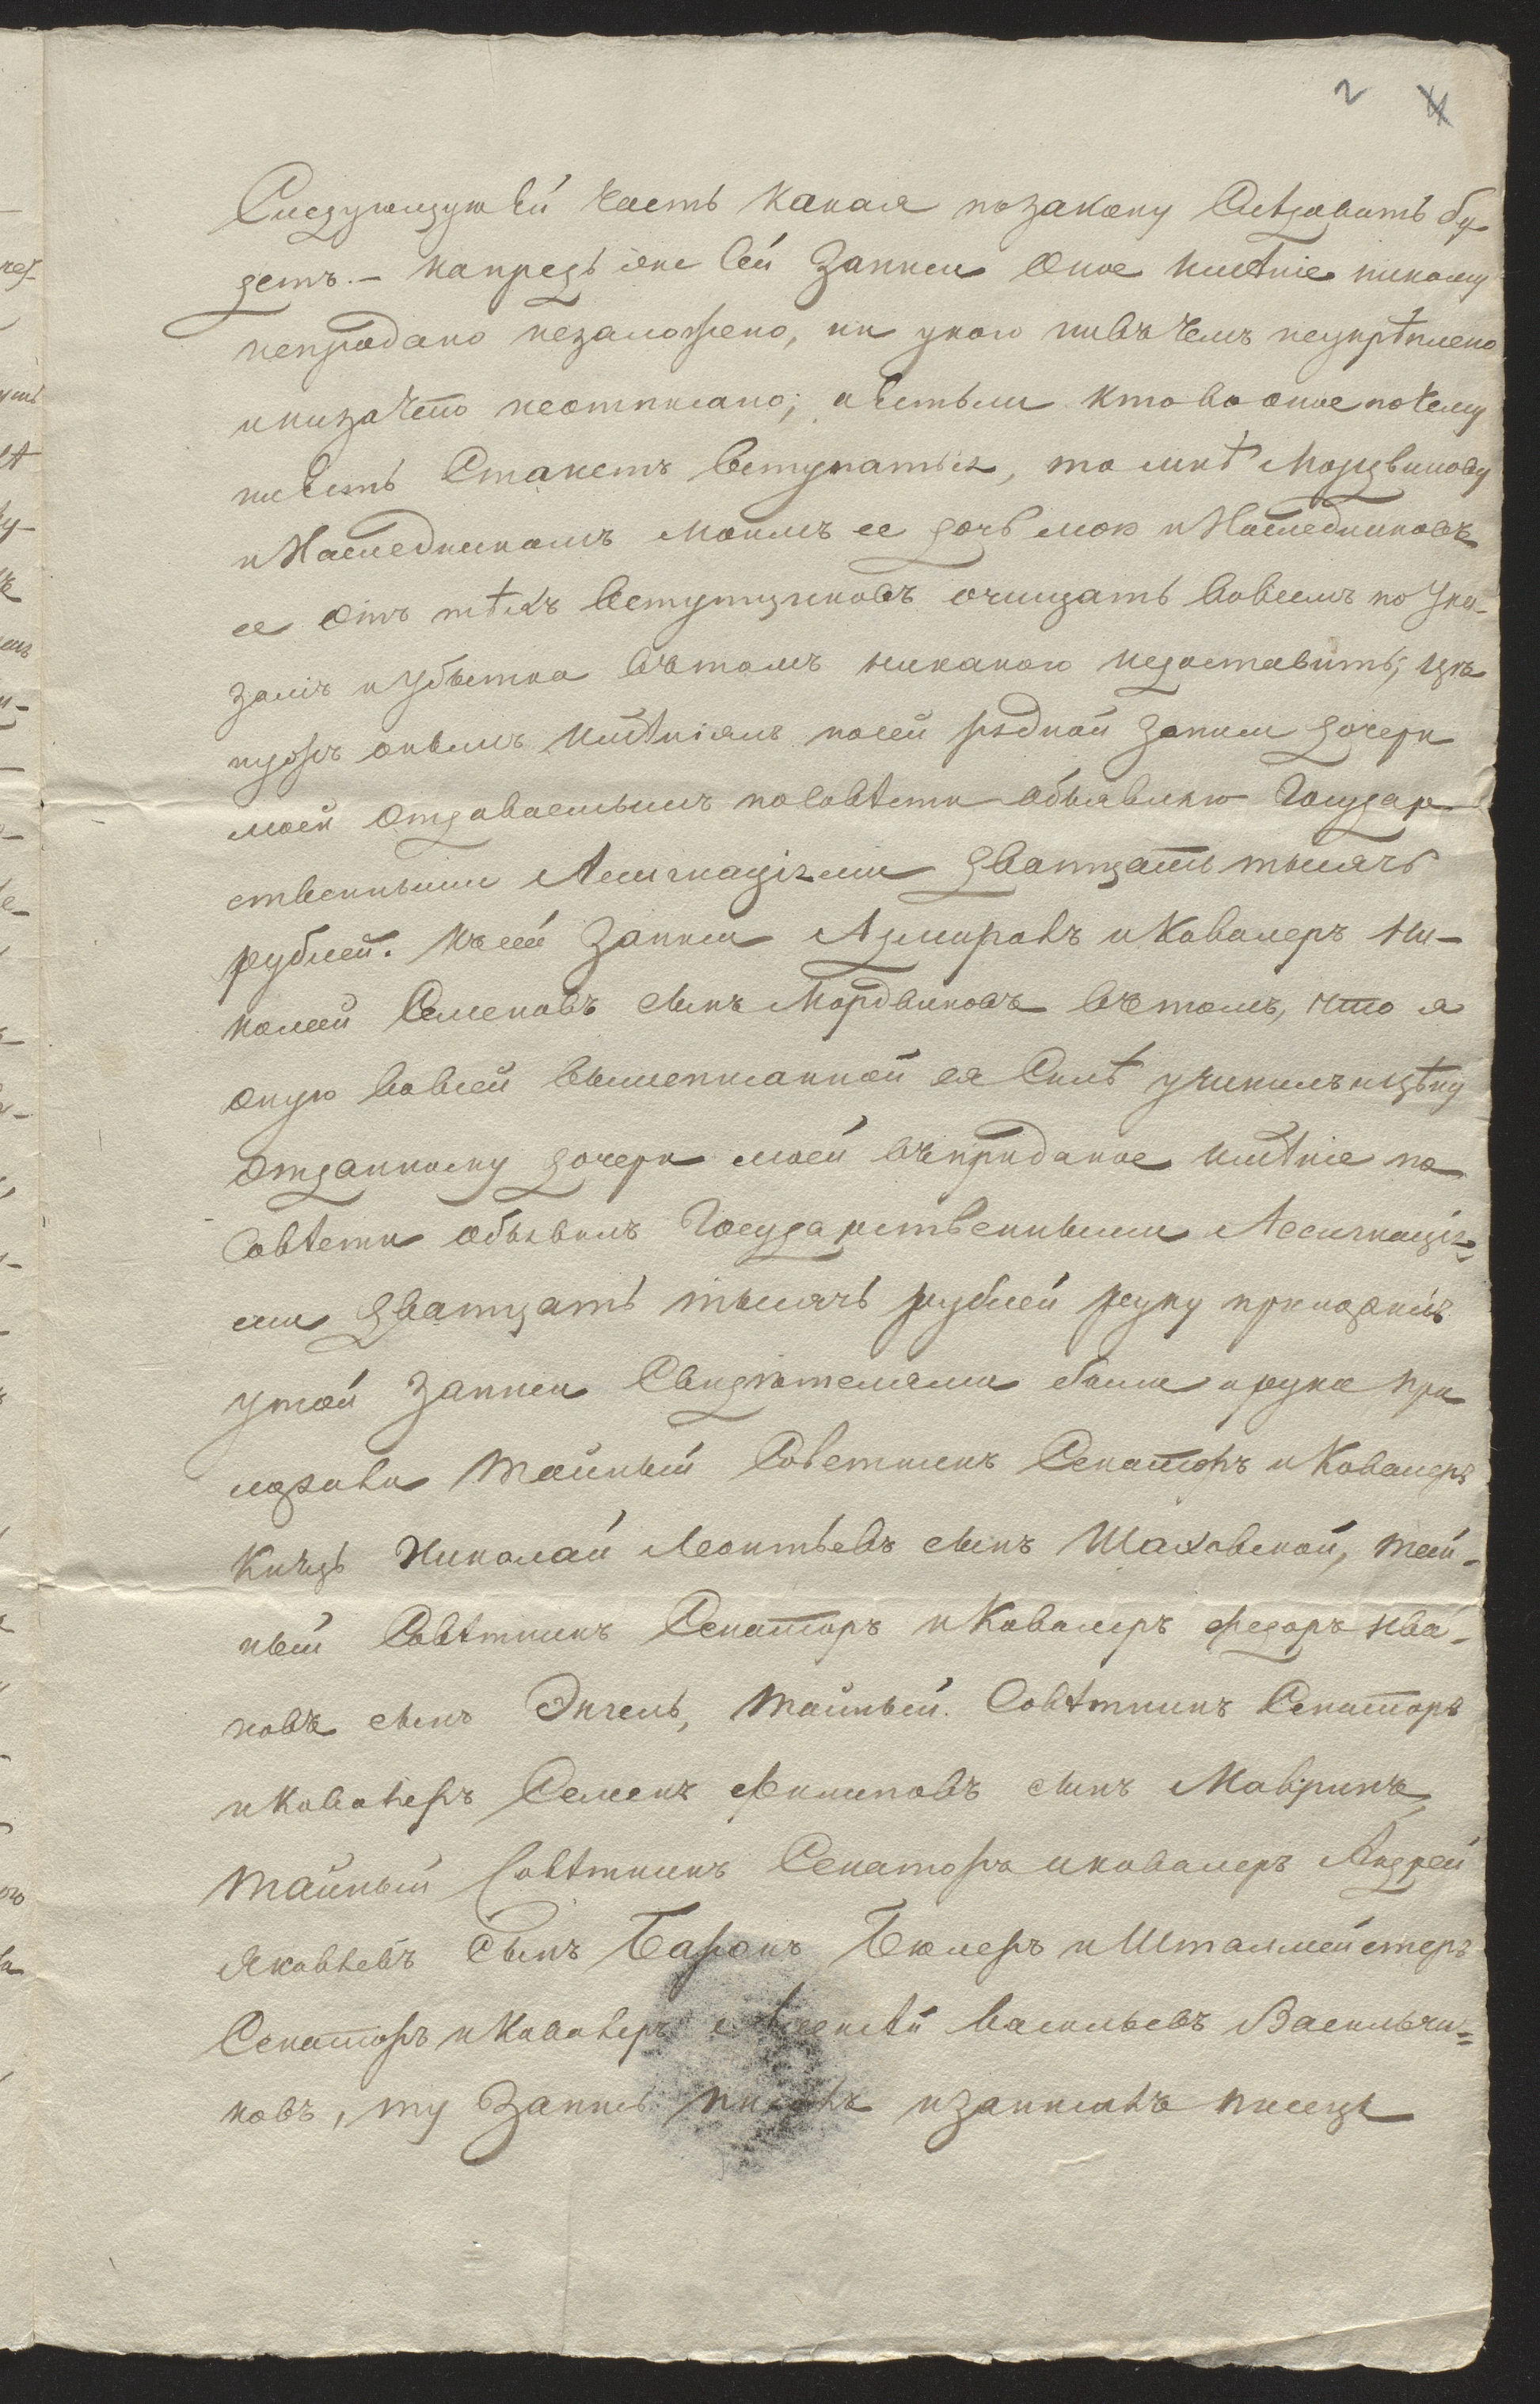 2 4
Следующую ей часть какая позакону Слѣдовать бу
детъ. — напредь же сей Записи Оное имѣніе никому
непродано незаложено, ни укого нивъ чемъ неукрѣплено
инизачто неотписано; аестьли кто во оное почему
нибудь Станетъ вступаться, то мнѣ Мордвинову
и Наследникамъ моимъ ее дочь мою и Наследниковъ
ее Отъ тѣхъ вступщиковъ очищать вовсемъ по Ука-
замъ и Убытка вътомъ никакого недоставить; цѣ
ну онымъ имѣніямъ посей рядной Записи дочери
моей Отдаваемымъ посовѣсти объявляю Государ
ственными Ассигнаціями дватцать тысячь
рублей. Къ сей Записи Адмиралъ и Кавалеръ Ни-
колай Семеновъ сынъ Мордвиновъ вътомъ, что я
оную вовсей вышеписанной ея Силѣ учинилъ ицѣну
Отданному дочери моей въ приданое имѣнію по
Совѣсти объявилъ Государственными Ассигнація-
ми дватцать тысячь рублей руку приложилъ
утой Записи Свидѣтелями были и руки при
ложили Тайный Советникъ Сенаторъ и Кавалеръ
Князь Николай Леонтьевъ сынъ Шаховской, Тай-
ный Совѣтникъ Сенаторъ и Кавалеръ Федоръ Ива-
новъ сынъ Энгель, Тайный Совѣтникъ Сенаторъ
и Кавалеръ Семенъ Филиповъ сынъ Мавринъ,
Тайный Совѣтникъ Сенаторъ и кавалеръ Андрей
Яковлевъ Сынъ Баронъ Бюлеръ и Шталмейстеръ
Сенаторъ и Кавалеръ Алексѣй Васильевъ Васильчи-
ковъ, ту Запись писалъ и записалъ писецъ